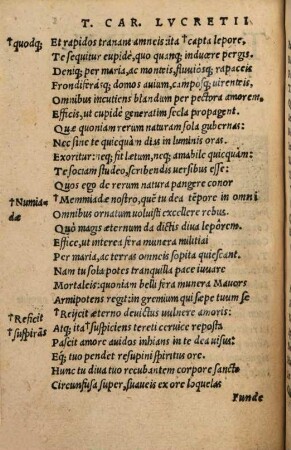 T. CAR. LVCRETII
†quodq; Et rapidos tranant amneis: ita †capta lepore,
Te sequitur cupidè, quo quanq; inducere pergis.
Deniq; per maria, ac monteis, fluuiósq; rapaceis
Frondiferásq; domos auium, campósq; uirenteis,
Omnibus incutiens blandum per pectora amorem,
Efficis, ut cupidè generatim secla propagent.
Quæ quoniam rerum naturam sola gubernas:
Nec sine te quicquàm dias in luminis oras.
Exoritur: neq; fit lætum, neq; amabile quicquàm:
Te sociam studeo, scribendis uersibus esse:
Quos ego de rerum natura pangere conor
†Numia-
dæ
†Memmiadæ nostro, quē tu dea tēpore in omni
Omnibus ornatum uoluisti excellere rebus.
Quò magis æternum da dictis diua lepôrem.
Effice, ut interea fera munera militiai
Per maria, ac terras omneis sopita quiescant.
Nam tu sola potes tranquilla pace iuuare
Mortaleis: quoniam belli fera munera Mauors
Armipotens regit: in gremium qui sæpe tuum se
†Reficit †Reijcit æterno deuictus uulnere amoris:
†suspirās Atq; ita †suspiciens tereti ceruice reposta
Pascit amore auidos inhians in te dea uisus:
Eq; tuo pendet resupini spiritus ore.
Hunc tu diua tuo recubantem corpore sancto
Circunfusa super, suaueis ex ore loquelas
Funde